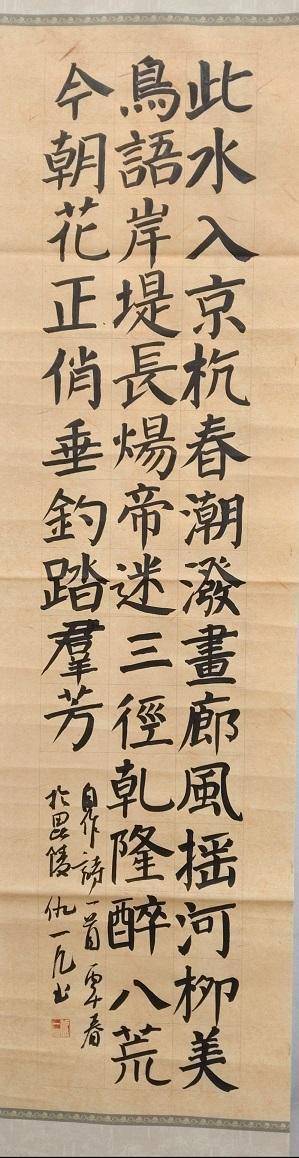 此水入京杭春潮潑畫廊風摇河柳美
鳥語岸堤長煬帝迷三徑乾隆醉八荒
今朝花正俏垂釣踏羣芳
自作詩一首 春
於毘陵 仇一凡书